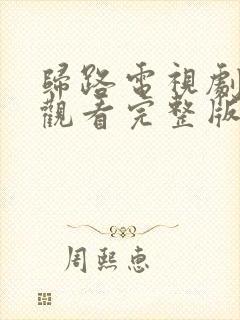 歸路電視劇
觀看完整版
周熙惠